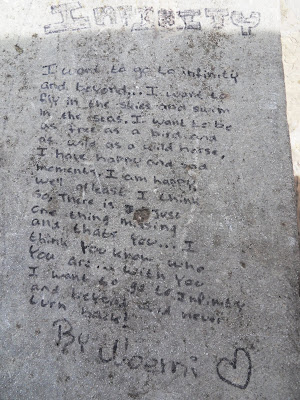 INFINITY
I want to go to infinity
and beyond... I want to
fly in the skies and swim
in the seas. I want to be
as free as a bird and
as wild as a wild horse,
I have happy and sad
moments. I am happy,
well atleast I think
so. There is just
one thing missing
and thats you... I
think you know who
you are... with you
I want to go to Infinity
and beyond and never
turn back!
By